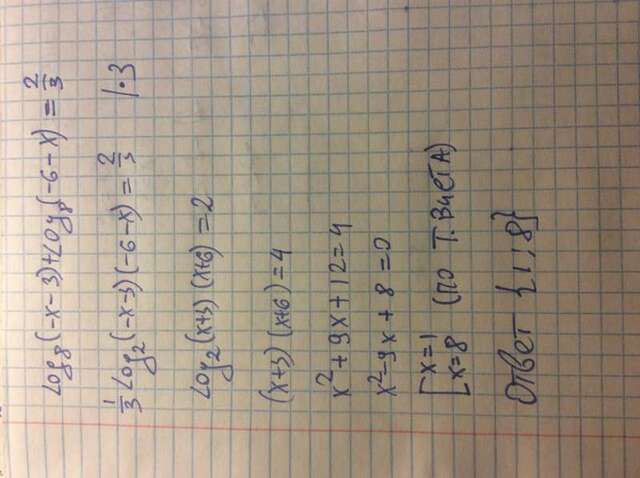 Log₈(-x-3)+Log₈(-6-x) = 2/3
1/3 Log₂(-x-3)(-6-x) = 2/3 |·3
Log₂(x+3)(x+6) = 2
(x+3)(x+6) = 4
x²+9x+12=4
x²-9x+8=0
[x=1
x=8 (по т. Виета)
Ответ {1; 8}